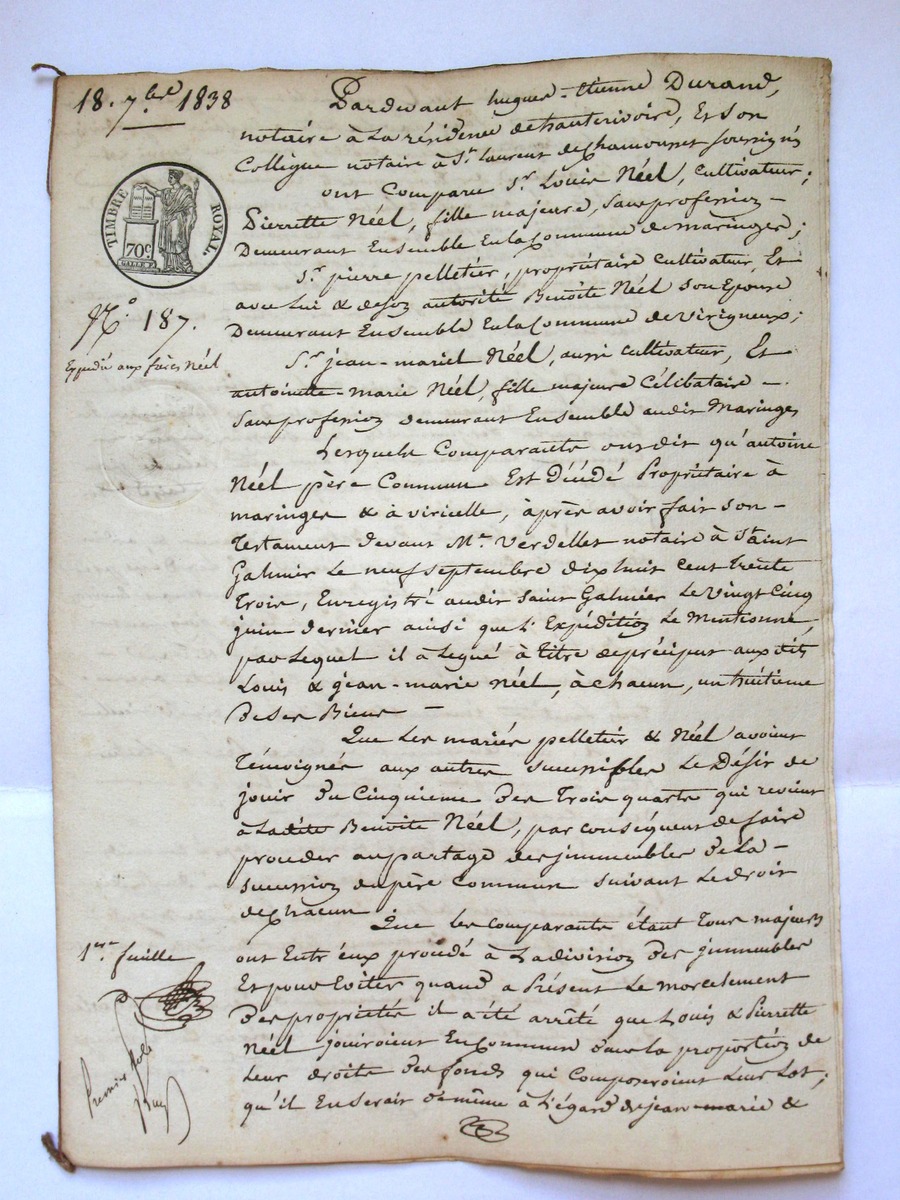 18. 7.bre 1838
TIMBRE ROYAL
70c
N.o 187.
Expédié aux frères Néel
Pardevant hugues-Etienne Durand,
notaire à La résidence de hauterivoire, Et son
Collègue notaire à St. Laurent de Chamousset soussignés
ont Comparu Sr. Louis Néel, Cultivateur;
Pierrette Néel, fille majeure, sans profession –
Demeurant Ensemble En la Commune de maringes;
Sr. pierre pelletier, propriétaire Cultivateur, Et
avec Lui & de son autorité Benoite Néel son Epouse
Demeurant Ensemble En la Commune de Virigneux;
Sr. jean-mariel Néel, aussi Cultivateur, Et
antoinette-marie Néel, fille majeure Célibataire –
Sans profession demeurant Ensemble audit Maringes
Lesquels Comparants ont dit qu'antoine
Néel père Commun Est Décédé Propriétaire à
maringes & à viricelle, à près avoir fait son –
Testament devant Me. Verdellet notaire à Saint
Galmier Le neuf septembre dix huit cent trente
Trois, Enregistré audit Saint Galmier Le Vingt Cinq
juin dernier ainsi que L'Expédition Le Mentionne,
par Lequel il à Legué à titre de préciput aux dits
Louis & jean-marie Néel, à chacun, un huitieme
De Ses Biens –
Que Les mariés pelletier & Néel avoient
Témoignés aux autres successibles Le Désir de
jouir Du Cinquieme Des Trois quarts qui revient
à Ladite Benoite Néel, par conséquent de faire
proceder au partage des jmmeubles De La –
succession du père Commun suivant Le droit
de Chacun
Que Les Comparants étant Tous majeurs
ont Entr'eux procédé à La division Des jmmeubles
Et pour Eviter quand à Présent Le morcelement
Des proprietés il à été arrêté que Louis & Pierrette
Néel jouiroient En Commun dans La proportion de
Leur droits Des fonds qui Composeroient Leur Lot;
qu'il En serait de même à L'égard de jean-marie &
1ere feuille
Premier Rôle